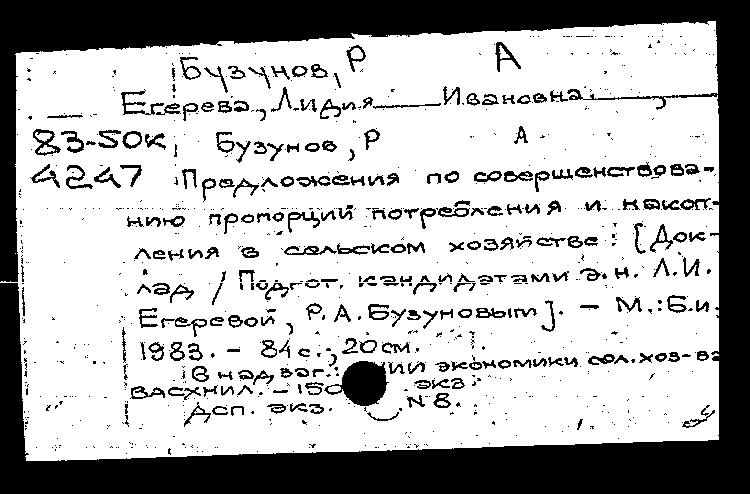 Бузунов, Р А
Егерева, Лидия Ивановна.
83-50к Бузунов, Р А
4247 Предложения по совершенствова-
нию пропорций потребления и накоп-
ления в сельском хозяйстве: [Док-
лад / Подгот. кандидатами э.н. Л.И.
Егеревой, Р.А.Бузуновым]. – М.: Б.и.
1983. – 84 с.; 20 см.
В надзаг.: НИИ экономики сел.хоз-ва
ВАСХНИЛ. – 150 экз.
Дсп. экз. N 8.